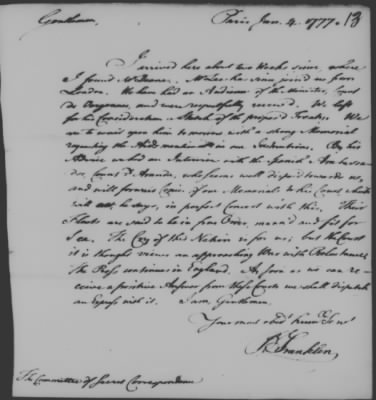 Gentlemen, Paris Jan. 4. 1777. 13
I arrived here about two Weeks since, where
I found Mr Deane. Mr Lee has since joined us from
London. We have had an Audience of the Minister, Count
de Vergennes, and were respectfully received. We left
for his Consideration a Sketch of the proposed Treaty. We
are to wait upon him tomorrow with a strong Memorial
requesting the Aids mentioned in our Instructions. By his
Advice we had an Interview with the Spanish Ambassa-
dor, Count d'Aranda, who seems well disposed towards us,
and will forward Copies of our Memorials to his Court, which
will act, he says, in perfect Concert with this. Their
Fleets are said to be in fine Order, mann'd and fit for
Sea. The Cry of this Nation is for us; but the Court
it is thought views an approaching War with Reluctance.
The Press continues in England. As soon as we can re-
ceive a positive Answer from these Courts we shall dispatch
an Express with it. I am, Gentlemen,
Your most obedt humble Servt
B Franklin,
The Committee of Secret Correspondence